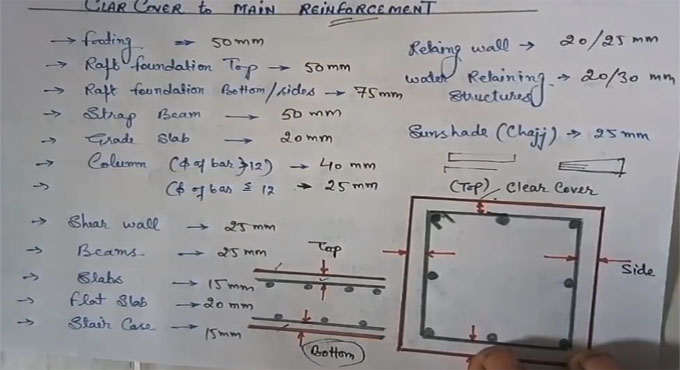 CLAR COVER to MAIN REINFORCEMENT
→ footing → 50mm
→ Raft foundation Top → 50mm
→ Raft foundation Bottom/sides → 75mm
→ Strap Beam → 50mm
→ Grade Slab → 20mm
→ Column (ϕ of bar > 12) → 40 mm
→ (ϕ of bar ≤ 12 → 25mm
→ Shear wall → 25mm
→ Beams → 25 mm
→ Slabs → 15mm
→ Flat Slab → 20mm
→ Stair Case → 15mm
Retaing wall → 20/25 mm
water Retaining → 20/30 mm
Structures
Sunshade (Chajj) → 25mm
(Top) Clear Cover
Top
Side
Bottom